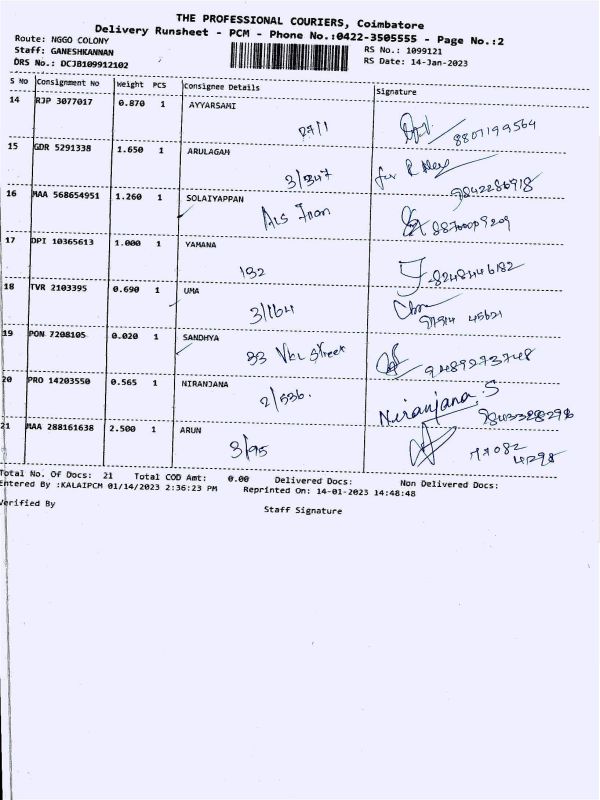 THE PROFESSIONAL COURIERS, Coimbatore
Delivery Runsheet - PCM - Phone No.:0422-3505555 - Page No.:2
Route: NGGO COLONY
RS No.: 1099121
Staff: GANESHKANNAN
RS Date: 14-Jan-2023
DRS No.: DCJB109912102
S No Consignment No Weight PCS Consignee Details Signature
14 RJP 3077017 0.870 1 AYYARSAMI
27/1 8807199564
15 GDR 5291338 1.650 1 ARULAGAM
3/347 for
9842286918
16 MAA 568654951 1.260 1 SOLAIYAPPAN
17 DPI 10365613 1.000 1 YAMANA
192 8248446182
18 TVR 2103395 0.690 1 UMA
3/164
97914 45621
19 PON 7208105 0.020 1 SANDHYA
33 Street 9489273748
20 PRO 14203550 0.565 1 NIRANJANA
2/536. Niranjana.S
21 MAA 288161638 2.500 1 ARUN
3/95 77082
4298
Total No. Of Docs: 21 Total COD Amt: 0.00 Delivered Docs: Non Delivered Docs:
Entered By :KALAIPCM 01/14/2023 2:36:23 PM Reprinted On: 14-01-2023 14:48:48
Verified By
Staff Signature